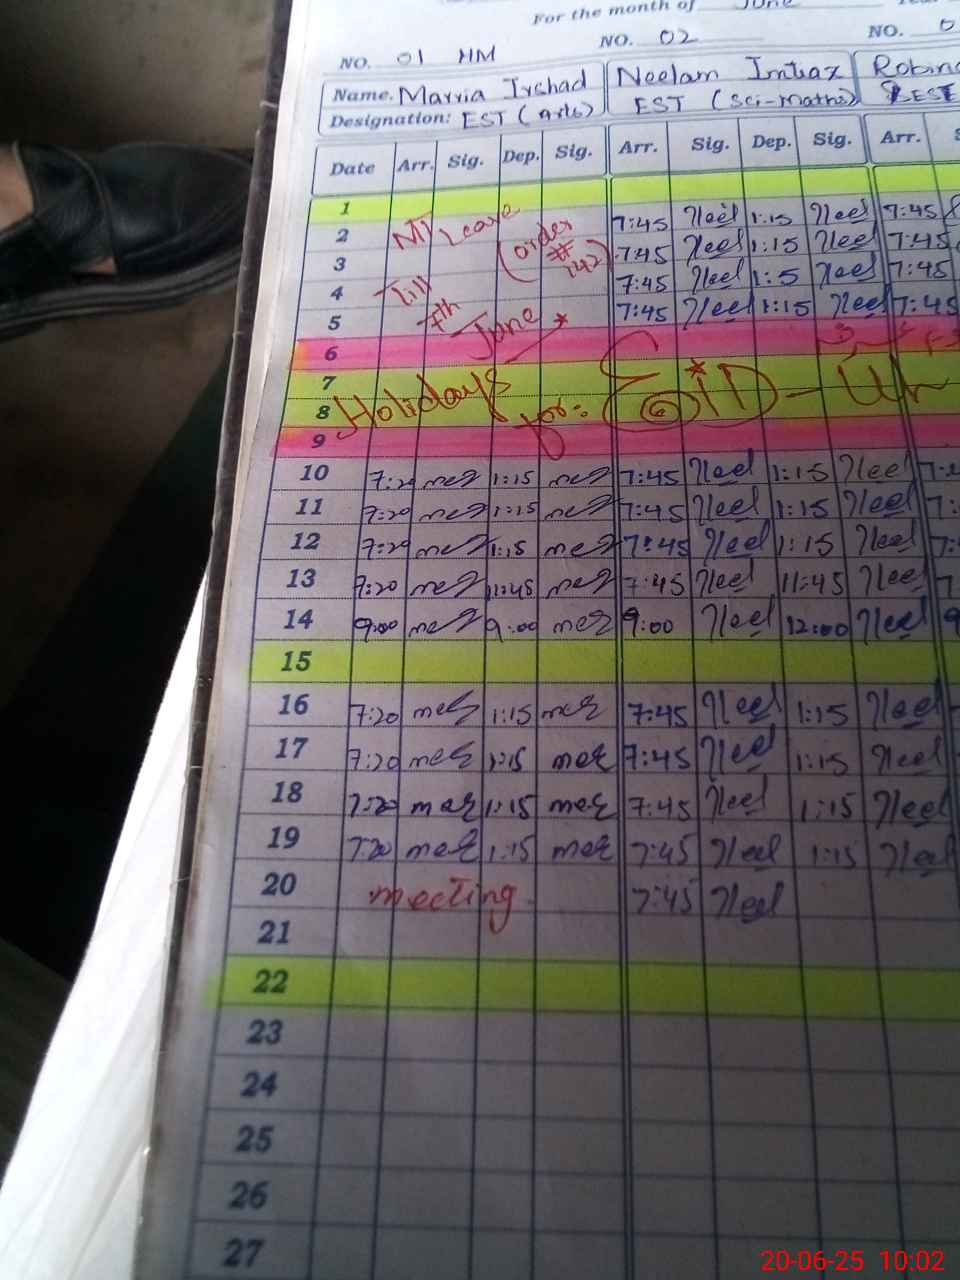 For the month of June
NO. 01 HM NO. 02 NO.
Name. Marria Irshad Neelam Imtiaz
Designation: EST (Arts) EST (Sci-Maths)
Date Arr. Sig. Dep. Sig. Arr. Sig. Dep. Sig. Arr.
1
2 Leave 7:45 Neel 1:15 Neel 7:45
3 (order # 142) 7:45 Neel 1:15 Neel 7:45
4 Till 7:45 Neel 1:5 Neel 7:45
5 7th June 7:45 Neel 1:15 Neel 7:45
6
7
8 Holidays for: EiD - Ul
9
10 7:20 1:15 7:45 Neel 1:15 Neel
11 7:20 1:15 7:45 Neel 1:15 Neel
12 7:20 1:15 7:45 Neel 1:15 Neel
13 7:20 11:45 7:45 Neel 11:45 Neel
14 9:00 9:00 9:00 Neel 12:00 Neel
15
16 7:20 1:15 7:45 Neel 1:15 Neel
17 7:20 1:15 7:45 Neel 1:15 Neel
18 7:20 1:15 7:45 Neel 1:15 Neel
19 7:20 1:15 7:45 Neel 1:15 Neel
20 meeting 7:45 Neel
21
22
23
24
25
26
27
20-06-25 10:02